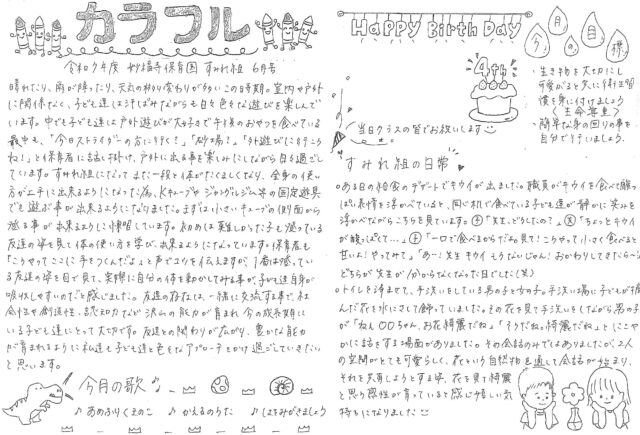 カラフル
令和7年度 妙福寺保育園 すみれ組 6月号
晴れたり、雨が降ったり、天気の移り変わりが多いこの時期。室内や戸外
に関係なく、子ども達は汗ばみながらも日々色々な遊びを楽しんで
います。中でも子ども達は戸外遊びが大好きで午後のおやつを食べている
最中も、「今日ストライダーの方に行く？」「砂場？」「外遊びに行こう
ね！」と保育者に話し掛け、戸外に出る事を楽しみにしながら日々過ごし
ています。すみれ組になって また一段と体がたくましくなり、全身の使い
方が上手に出来るようになった為、Kキューブや ジャングルジム等の固定遊具
でも遊ぶ事が出来るようになりました。まずは小さいキューブの側面から
登る事が出来るように練習しています。初めは難しかった子も登っている
友達の姿を見て体の使い方を学び、出来るようになっています。保育者も
「こうやってここに手をつくんだよ」と声でコツを伝えますが、1番は登ってい
る友達の姿を目で見て、実際に自分の体を動かしてみる事が、子ども達自身が
吸収しやすいのだと感じました。友達の存在は、一緒に交流する事で、社
会性や創造性、認知力など沢山の能力が育まれ、今の成長期に
いる子ども達にとって大切です。友達との関わりが広がり、豊かな能力
が育まれるように私達も子ども達と色々なアプローチをかけ過ごしていきたい
と思います。
今月の歌♪
♪あめふりくまのこ ♪かえるのうた ♪はをみがきましょう
HAPPY Birth Day
4th
当日クラスの皆でお祝いします
今月の目標
・生き物を大切にし
可愛がると共に衛生習
慣を身に付けましょう
(生命尊重)
・簡単な身の回りの事を
自分で行いましょう。
すみれ組の日常
○ある日の給食のデザートでキウイが出ました。職員がキウイを食べて酸っ
ぱい表情を浮かべていると、同じ机で食べている子ども達が静かに笑みを
浮かべながらこちらを見ています。子「先生、どうしたの？」先「ちょっとキウイ
が酸っぱくて…」子「一口で食べるからだよ。見て！こうやって小さく食べると
甘いよ！やってみて」「あ〜！先生キウイもうないじゃん！おかわりしてきたら〜」
どちらが先生か分からなくなった日でした(笑)
○トイレを済ませて、手洗いをしている男の子と女の子。手洗い場に子どもが摘
んだ花を水にさして飾っていました。その花を見て手洗いをしながら男の子
が「ねえ○○ちゃん、お花綺麗だね。」「そうだね。綺麗だね」とにこや
かに話をする場面がありました。その会話のみではありましたが、2人
の空間がとても可愛らしく、花という自然物を通して会話が始まり、
それを共有しようとする姿、花を見て綺麗
と思う感性が育っていると感じ嬉しい気
持ちになりました